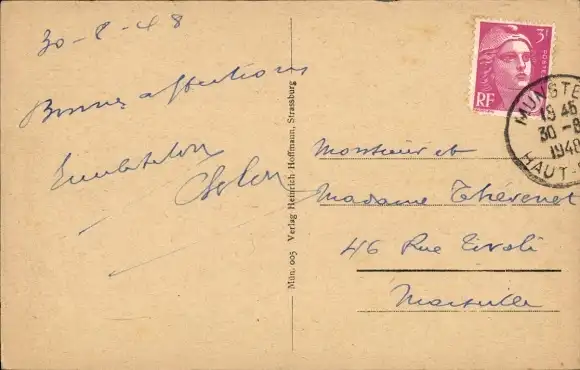 30-8-48
Bonnes affections
Mün. 005 Verlag Heinrich Hoffmann, Strassburg
3F
POSTES
RF
MUNSTE
19 45
30 -8
1948
HAUT-
Monsieur et
Madame Thévenet
46 Rue Tivoli
Marseille